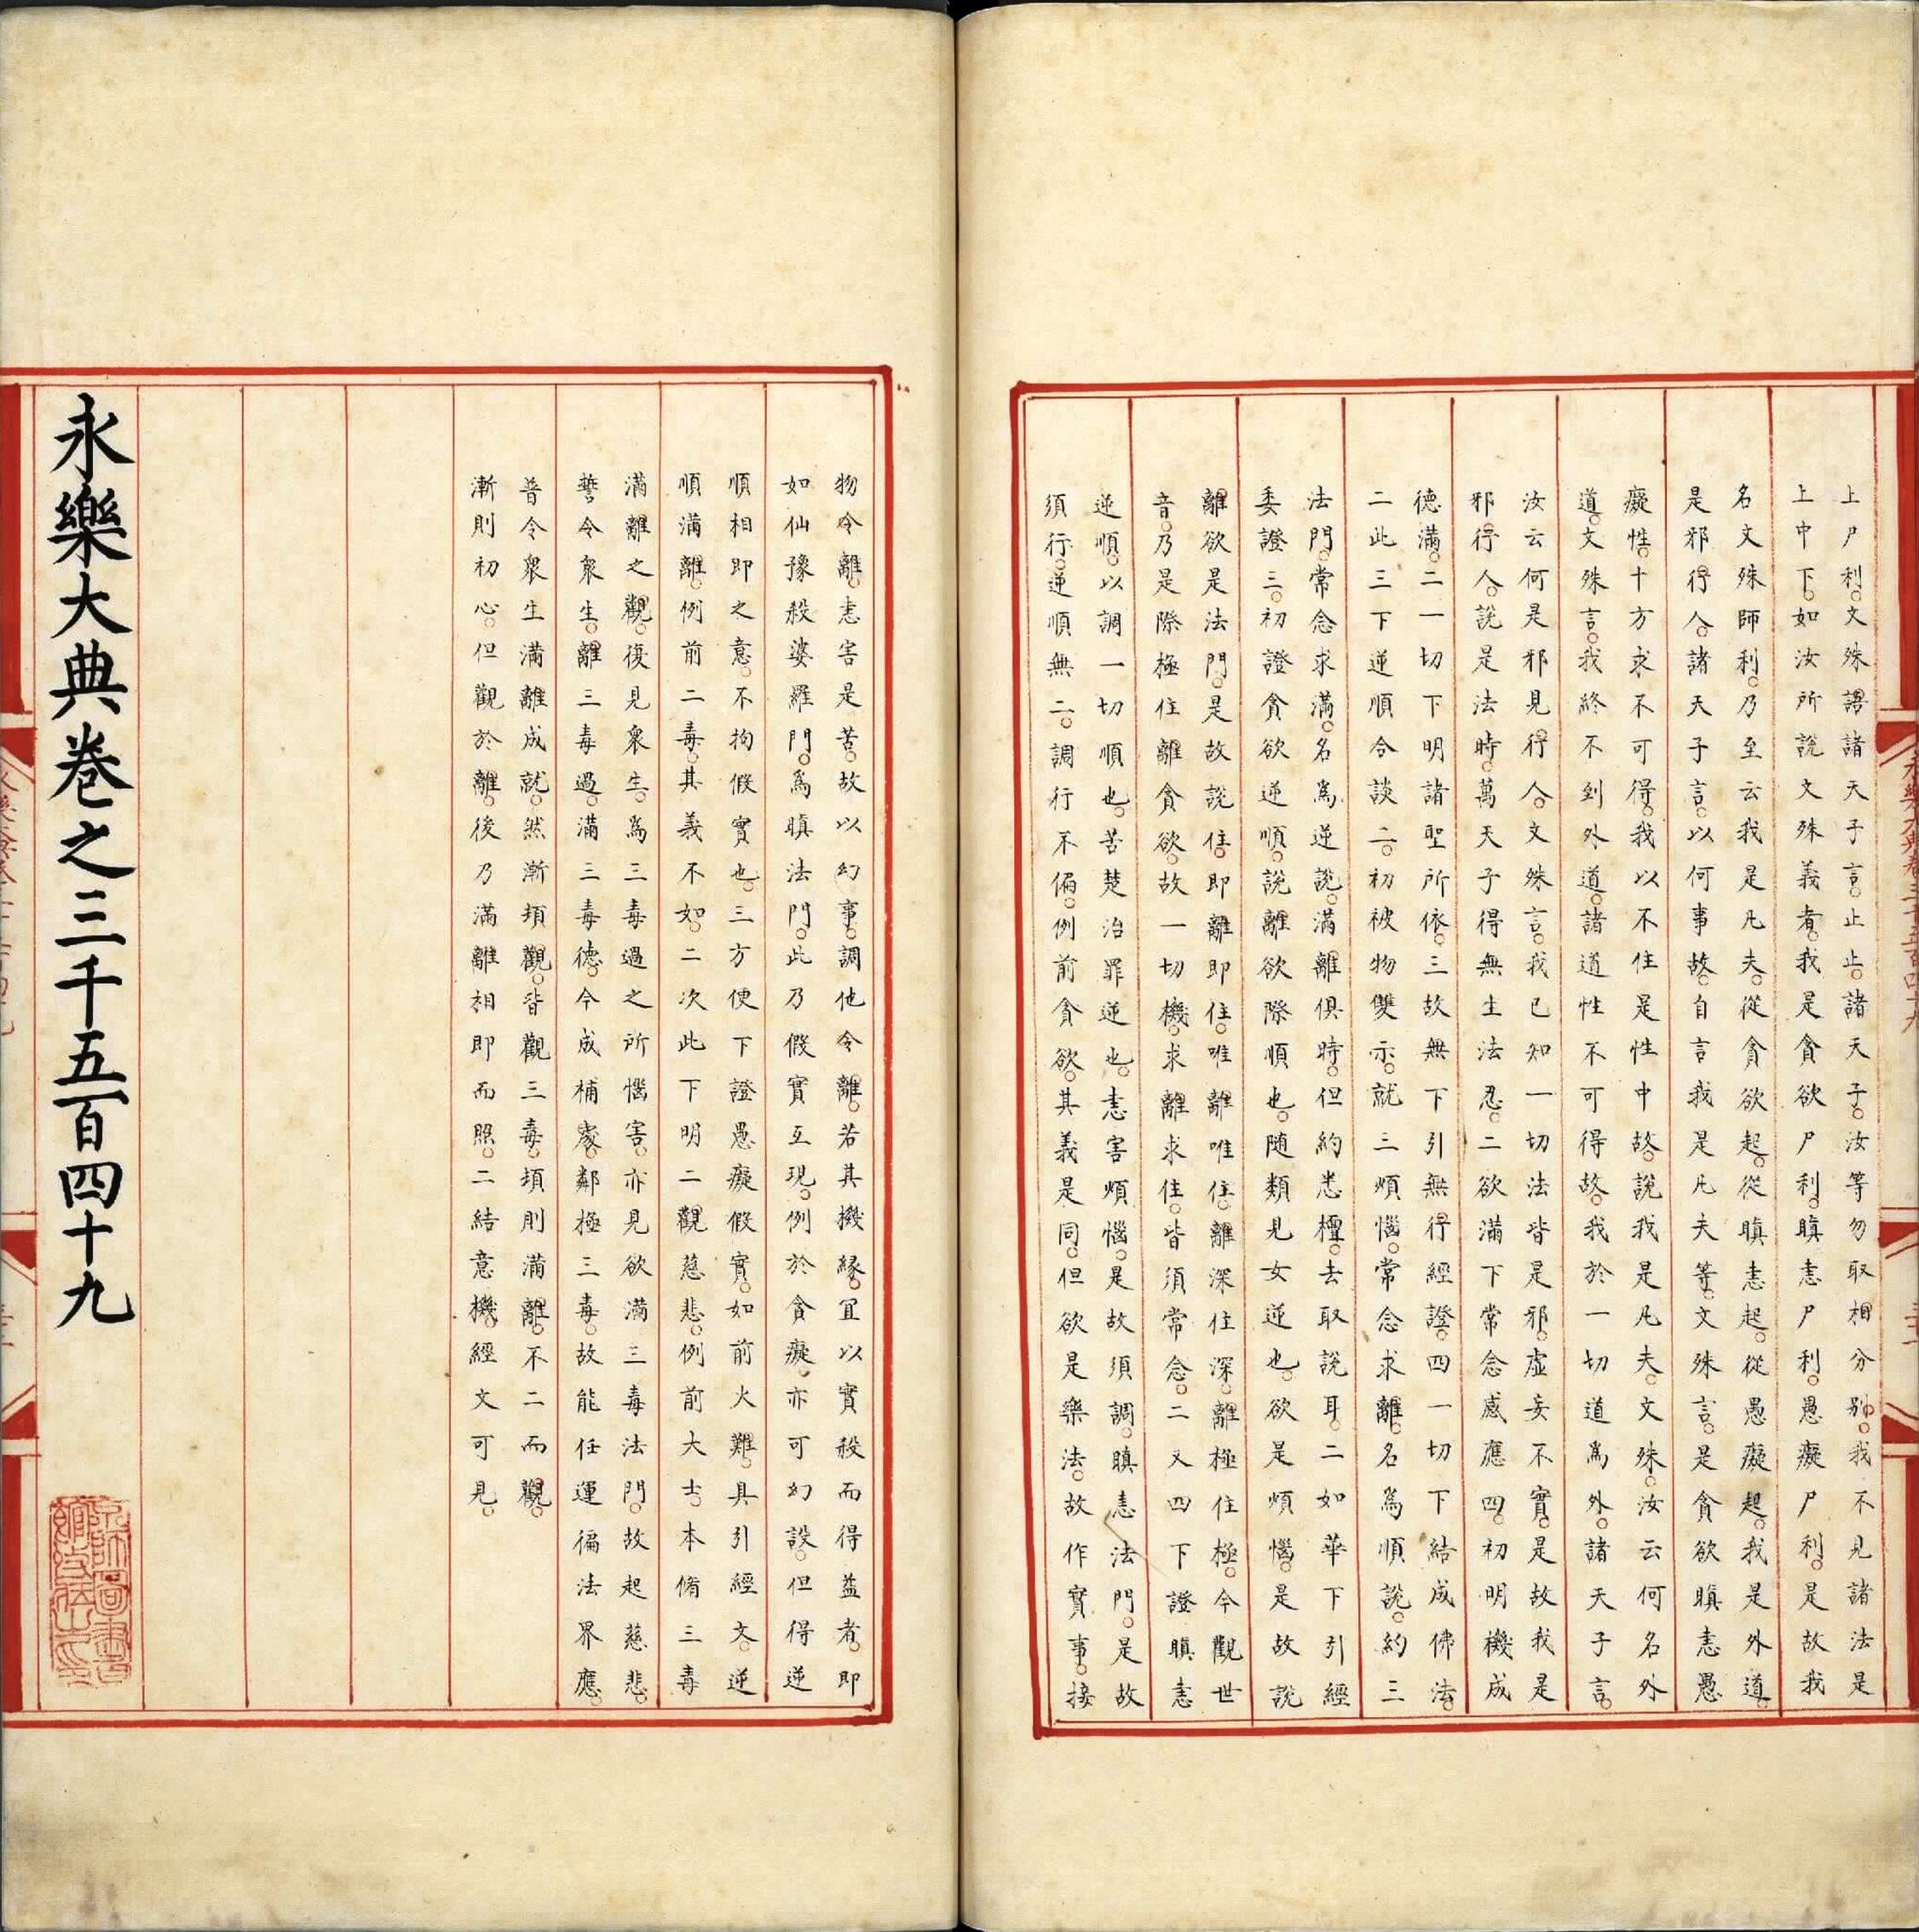 上尸利。文殊謂諸天子言。止止。諸天子。汝等勿取相分別。我不見諸法是
上中下。如汝所說文殊義者。我是貪欲尸利。瞋恚尸利。愚癡尸利。是故我
名文殊師利。乃至云我是凡夫。從貪欲起。從瞋恚起。從愚癡起。我是外道。
是邪行人。諸天子言。以何事故。自言我是凡夫等。文殊言。是貪欲瞋恚愚
癡性。十方求不可得。我以不住是性中故。說我是凡夫。文殊。汝云何名外
道。文殊言。我終不到外道。諸道性不可得故。我於一切道爲外。諸天子言。
汝云何是邪見行人。文殊言。我已知一切法皆是邪。虛妄不實。是故我是
邪行人。說是法時。萬天子得無生法忍。二欲滿下常念感應四。初明機成
德滿。二一切下明諸聖所依。三故無下引無行經證。四一切下結成佛法。
二此三下逆順合談二。初被物雙示。就三煩惱。常念求離。名爲順說。約三
法門。常念求滿。名爲逆說。滿離俱時。但約悉檀。去取說耳。二如華下引經
委證三。初證貪欲逆順。說離欲際順也。隨類見女逆也。欲是煩惱。是故說
離欲是法門。是故說住。即離即住。唯離唯住。離深住深。離極住極。今觀世
音。乃是際極住離貪欲。故一切機。求離求住。皆須常念。二又四下證瞋恚
逆順。以調一切順也。苦楚治罪逆也。恚害煩惱。是故須調。瞋恚法門。是故
須行。逆順無二。調行不偏。例前貪欲。其義是同。但欲是樂法。故作實事。接
物令離。恚害是苦。故以幻事。調他令離。若其機緣。宜以實殺而得益者。即
如仙豫殺婆羅門。爲瞋法門。此乃假實互現。例於貪癡。亦可幻設。但得逆
順相即之意。不拘假實也。三方便下證愚癡假實。如前火難。具引經文。逆
順滿離。例前二毒。其義不如。二次此下明二觀慈悲。例前大士。本脩三毒
滿離之觀。復見衆生。爲三毒過之所惱害。亦見欲滿三毒法門。故起慈悲。
誓令衆生。離三毒過。滿三毒德。今成補處。鄰極三毒。故能任運徧法界應。
普令衆生滿離成就。然漸頓觀。皆觀三毒。頓則滿離。不二而觀。
漸則初心。但觀於離。後乃滿離相即而照。二結意機。經文可見。
永樂大典卷之三千五百四十九
京師圖書館收藏之印
永樂大典卷三千五百四十九